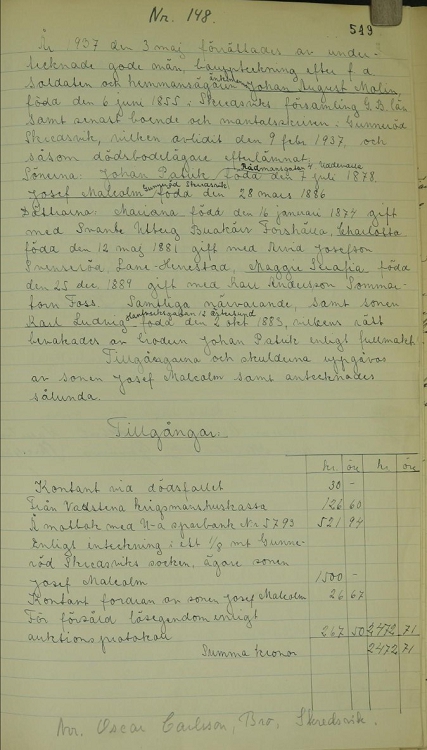 Nr. 148.
549
År 1937 den 3 maj förrättades av under-
tecknade gode män, bouppteckning efter f.d.
soldaten och hemmansägaren änkeman Johan August Malm,
född den 6 juni 1855 i Skredsviks församling G.B. län
samt senast boende och mantalsskriven i Gunneröd
Skredsvik, vilken avlidit den 9 febr 1937, och
såsom dödsbodelägare efterlämnat
Sönerna: Johan Patrik Rådmansgatan 4 Uddevalla född den 7 juli 1878,
Josef Malcolm Gunneröd Skredsvik född den 28 mars 1886
Döttrarna: Mariana född den 16 januari 1874 gift
med Svante Utberg Forshälla, Charlotta
född den 12 maj 1881 gift med Arvid Josefson
Svenseröd, Lane-Herrestad, Maggie Serafia född
den 25 dec. 1889 gift med Karl Andersson Sommar-
torn Foss. Samtliga närvarande, samt sonen
Karl Ludvig Östersund född den 2 okt 1883, vilkens rätt
bevakades av brodern Johan Patrik enligt fullmakt.
Tillgångarna och skulderna uppgåvos
av sonen Josef Malcolm samt antecknades
sålunda.
Tillgångar:
kr. öre kr. öre
Kontant vid dödsfallet 30 -
Från Vadstena krigsmanshuskassa 126 60
Å motbok med U-a sparbank Nr 5793 521 94
Enligt inteckning i ett 1/8 mt Gunne-
röd Skredsviks socken, ägare sonen
Josef Malcolm 1500 -
Kontant fordran av sonen Josef Malcolm 26 67
För försåld lösegendom enligt
auktionsprotokoll 267 50 2472 71
Summa kronor 2472 71
Nr. Oscar Carlsson, Bro, Skredsvik.